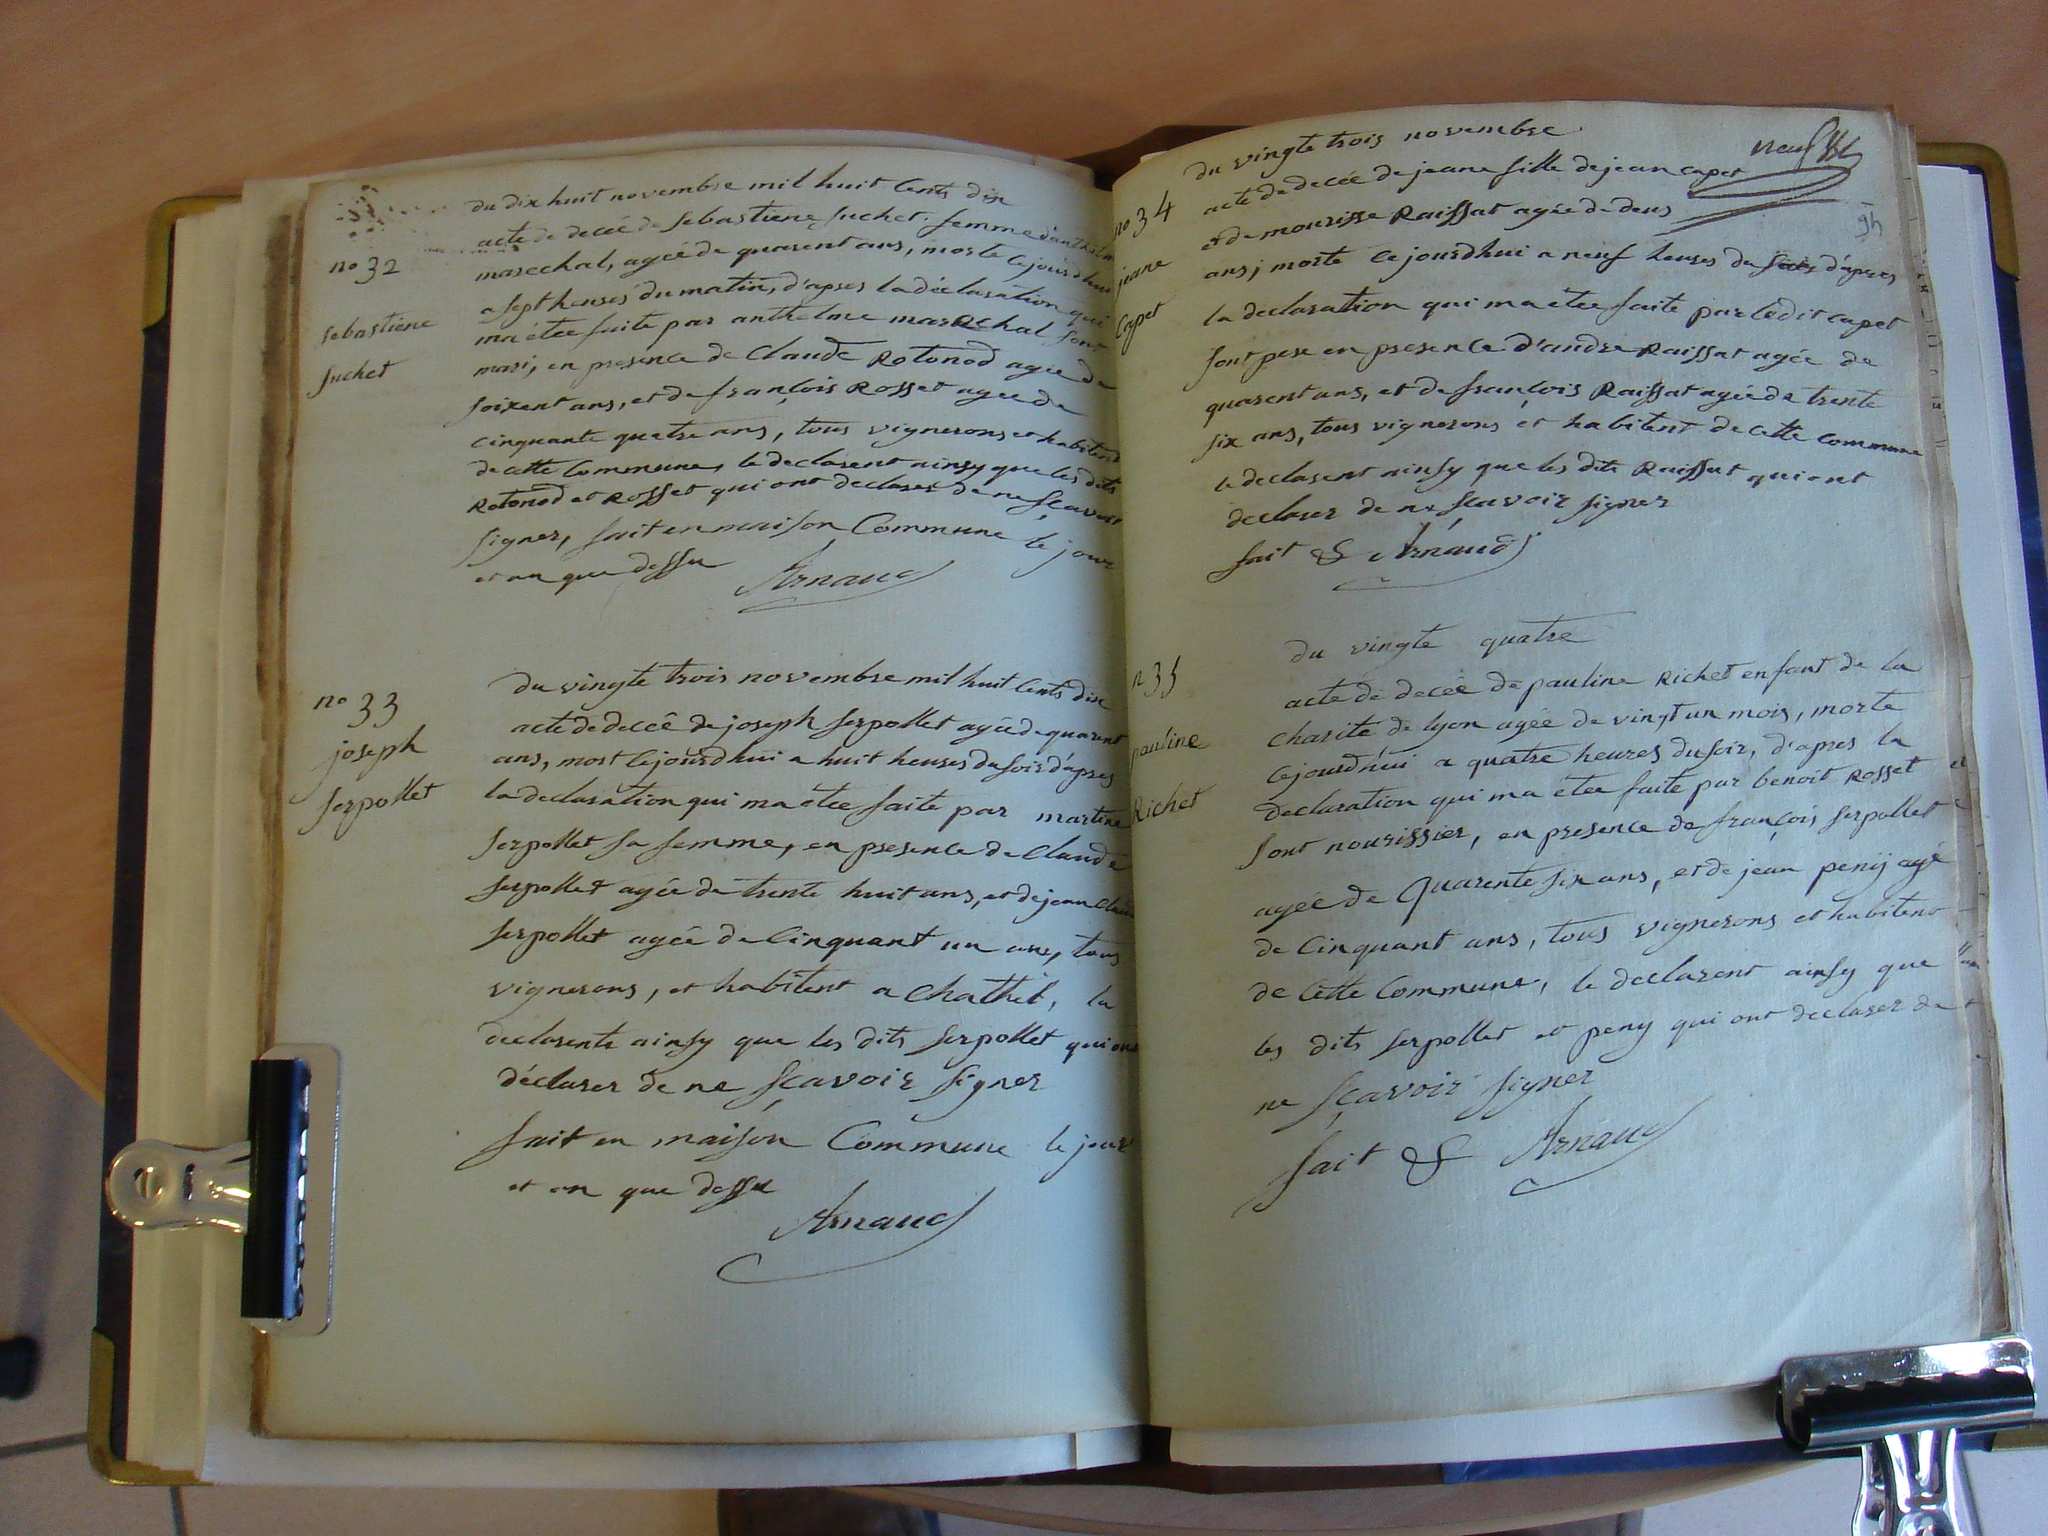 no 32
sebastiene
suchet
du dix huit novembre mil huit cents dix
acte de decée de sebastiene suchet femme d'anthelme
marechal, agée de quarent ans, morte cejourdhui
a sept heures du matin, d'apres la déclaration qui
ma étée faite par anthelme marechal sont
mari, en presence de claude Rotonod agée de
soixent ans, et de françois Rosset agée de
cinquante quatre ans, tous vignerons et habitent
de cette commune, le declarent ainsy que les dits
Rotonod et Rosset qui ont declarer de ne sçavoir
signer, fait en maison Commune le jour
et an que dessu
Arnaud
no 33
joseph
serpollet
du vingte trois novembre mil huit cents dix
acte de decée de joseph serpollet agée de quarent
ans, mort cejourdhui a huit heures du soir d'apres
la declaration qui ma étée faite par martine
serpollet sa femme, en presence de claude
serpollet agée de trente huit ans, et de jean claude
serpollet agée de cinquant un ans, tous
vignerons, et habitent a Chathil, la
declarente ainsy que les dits serpollet qui ont
déclarer de ne sçavoir signer
fait en maison Commune le jour
et an que dessu
Arnaud
neuf
no 34
jeane
Capet
du vingte trois novembre
acte de decée de jeane fille de jean capet
et de mourisse Raissat agée de deus
ans; morte cejourdhui a neuf heures du soir d'apres
la declaration qui ma étée faite par ledit capet
sont pere en presence d'andre Raissat agée de
quarent ans, et de françois Raissat agée de trente
six ans, tous vignerons et habitent de cette commune
le declarent ainsy que les dits Raissat qui ont
declarer de ne sçavoir signer
fait & Arnaud
n 35
pauline
Richet
du vingte quatre
acte de decée de pauline Richet enfant de la
charité de lyon agée de vingt un mois, morte
cejourd'hui a quatre heures du soir, d'apres la
declaration qui ma étée faite par benoit Rosset
sont nourissier, en presence de françois serpollet
agée de Quarente six ans, et de jean peny agé
de cinquant ans, tous vignerons et habitent
de cette commune, le declarent ainsy que
les dits serpollet et peny qui ont declarer de
ne sçavoir signer
fait & Arnaud